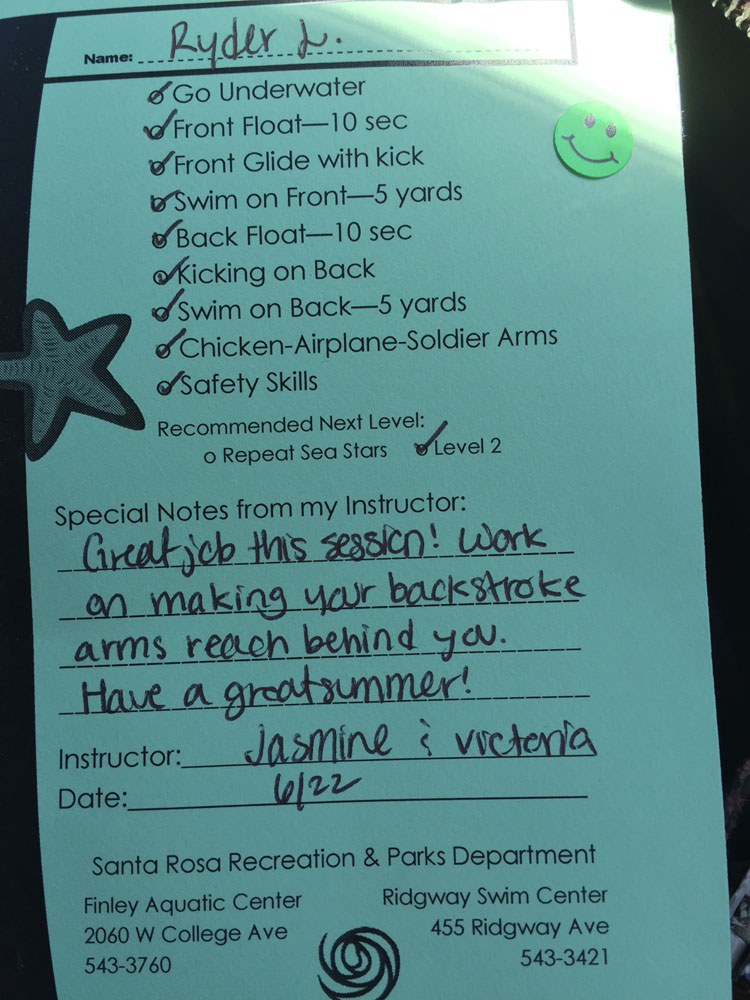 Name: Ryder L.
Go Underwater
Front Float—10 sec
Front Glide with kick
Swim on Front—5 yards
Back Float—10 sec
Kicking on Back
Swim on Back—5 yards
Chicken-Airplane-Soldier Arms
Safety Skills
Recommended Next Level:
o Repeat Sea Stars Level 2
Special Notes from my Instructor:
Great job this session! Work
on making your backstroke
arms reach behind you.
Have a great summer!
Instructor: Jasmine & Victoria
Date: 6/22
Santa Rosa Recreation & Parks Department
Finley Aquatic Center
2060 W College Ave
543-3760
Ridgway Swim Center
455 Ridgway Ave
543-3421